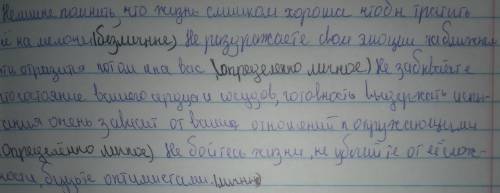 Нелишне помнить что жизнь слишком хороша чтобы тратить
ё на мелочи (безличное) Не разуражаете свои эмоции на ближнем
эти отразится потом и на вас (определенно личное) Не забывайте
что состояние вашего сердца и сосудов, готовность выдержать испы-
тания очень зависит от ваших отношений к окружающими
(определённо личное) Не бойтесь жизни, не убегайте от её слож-
ности, будьте оптимистами. (личное)